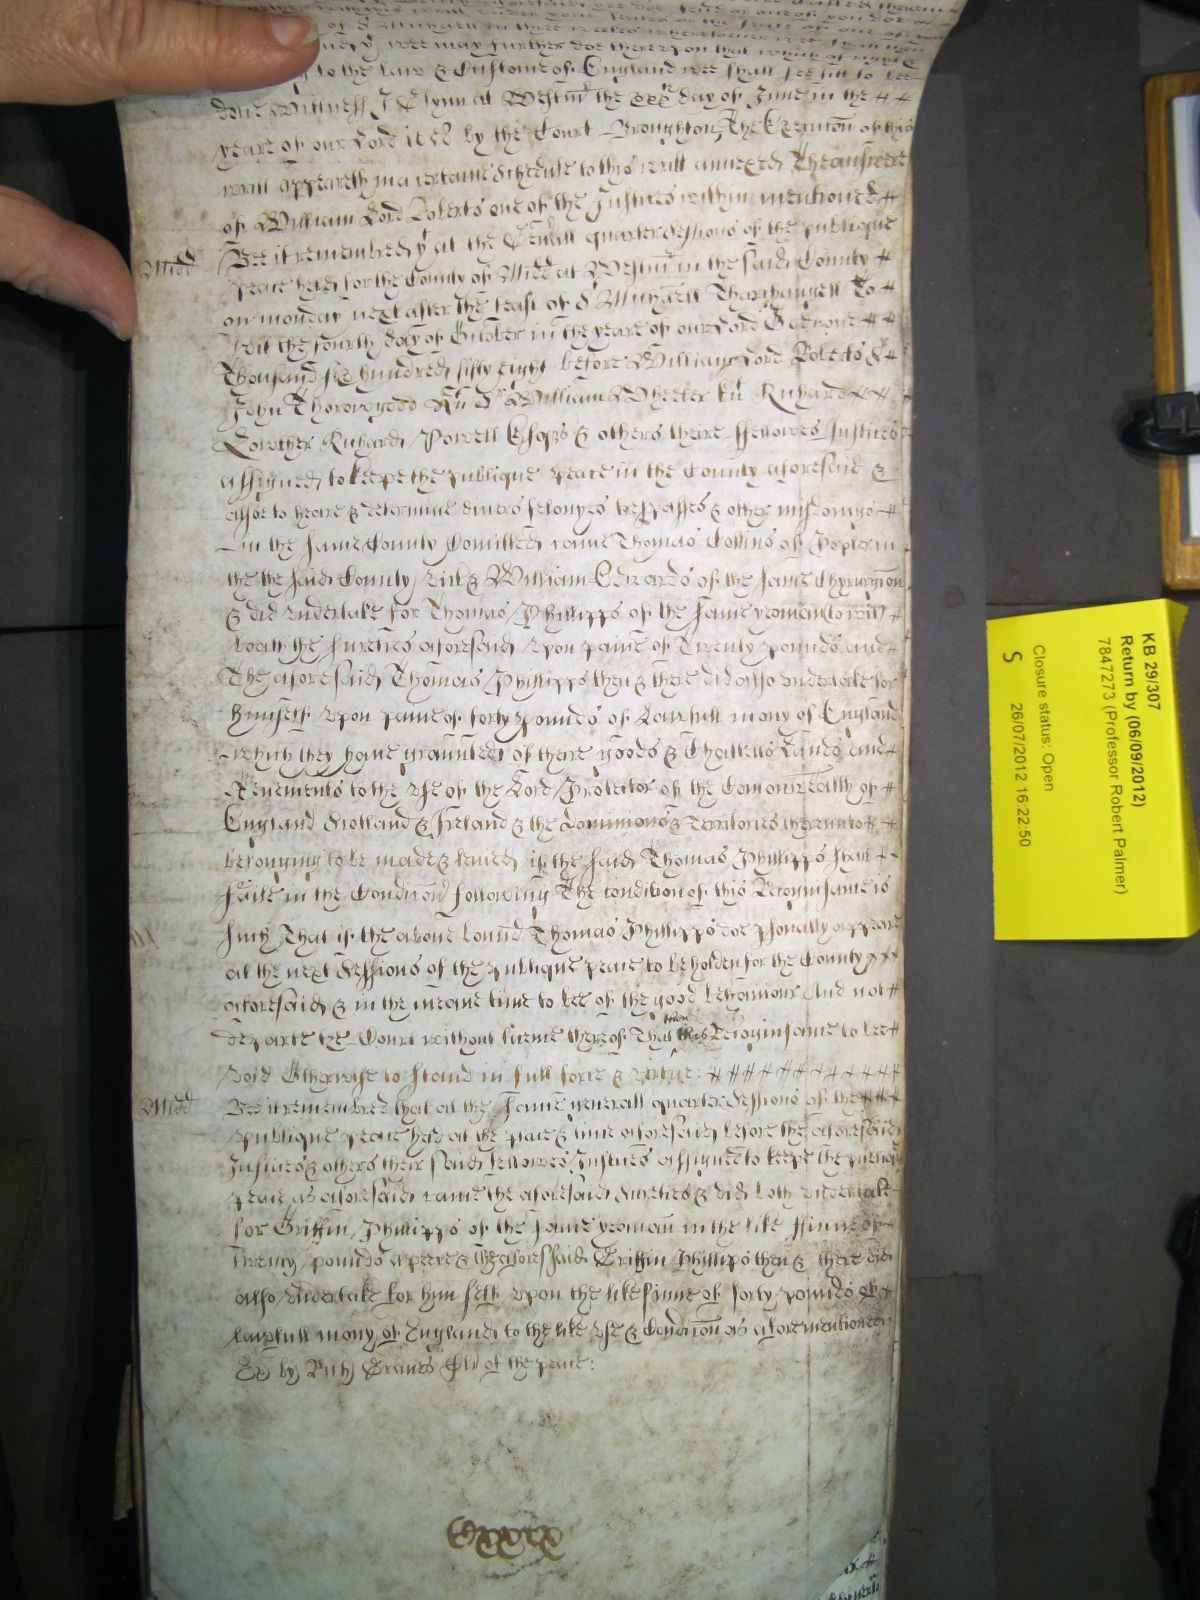 to the Law & Custome of England wee shall see fitt to bee
done Wittness J Glynn at Westmr the xxxth day of June in the
yeare of our Lord 1658 by the Court Broughton, The Execucon of this
writt appeareth in a certaine Schedule to this writt annexed The answere
of William Lord Roberts one of the Justices within mentioned
Midd
Bee it remembred yt at the Genrall quarter Sessions of the publique
peace held for the County of Midd at Westmr in the said County
on monday next after the feast of St Michaell Tharchangell To
wit the fourth day of October in the yeare of our Lord God one
Thousand six hundred fifty eight before William Lord Roberts Sr
John Thorowgood Knt Sr William Wheeler knt Richard
Lowther Richard Powell Esqrs & others theire ffellowes Justices
assigned to keepe the publique peace in the County aforesaid &
alsoe to heare & determine divers felonyes trespasses & other misdemrs
in the same County Comitted came Thomas Collins of Popler in
the the said County & William Edwards of the same Chyrurgion
& did undertake for Thomas Phyllipps of the same yeoman to wit
both the sureties aforesaid upon paine of Twenty pounds and
The aforesaid Thomas Phyllipps then & there did also undertake for
himself upon paine of forty pounds of Lawfull mony of England
which they have graunted of theire goods & Chattells Lands and
Tenements to the use of the Lord Protector of the Comonwealth of
England Scotland & Ireland & the dominions & Territories thereunto
belonging to be made & levied if the said Thomas Phyllipps shall
faile in the Condicon following The condition of this Recognisance is
such That if the above bound Thomas Phyllipps doe psonally appeare
at the next Sessions of the publique peace to be holden for the County
aforesaid & in the meane time to bee of the good behaviour And not
departe the Court without licence thereof That then this Recognisance to bee
void Otherwise to stand in full force & virtue:
Midd
Bee it remembred that at the same generall quarter Sessions of the
publique peace held at the place & time aforesaid before the aforesaid
Justices & others their said fellowes Justices assigned to keepe the publique
peace as aforesaid came the aforesaid Sureties & did both undertake
for Griffin Phyllipps of the same yeoman in the like ffinne of
Twenty pounds apeece & the aforesaid Griffin Phyllipps then & there did
also undertake for him self upon the like finne of forty pounds of
lawfull mony of England to the like use & Condicon as aforementioned
Ex by Rich Graves Cler of the peace:
KB 29/307
Return by (06/09/2012)
7847273 (Professor Robert Palmer)
Closure status: Open
S 26/07/2012 16:22:50